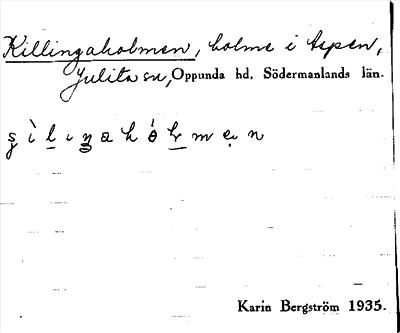 Killingaholmen, holme i Aspen,
Julita sn, Oppunda hd, Södermanlands län.
Karin Bergström 1935.